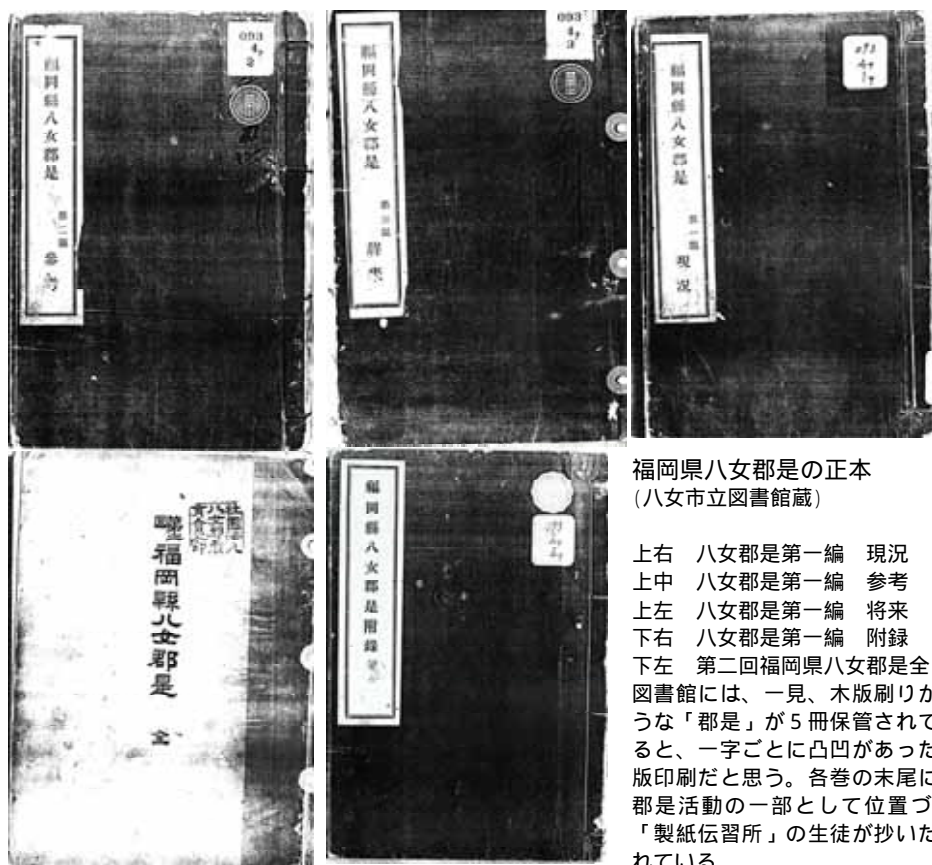 福岡縣八女郡是
第二編
參考
093
4ヤ
2
福岡縣八女郡是
093
4ヤ
3
福岡縣八女郡是
第一編
現況
093
4ヤ
1ヤ
福岡縣八女郡是
全
福岡縣八女郡是附錄
福岡県八女郡是の正本
(八女市立図書館蔵)
上右 八女郡是第一編 現況
上中 八女郡是第一編 参考
上左 八女郡是第一編 将来
下右 八女郡是第一編 附録
下左 第二回福岡県八女郡是全
図書館には、一見、木版刷りか
うな「郡是」が5冊保管されて
ると、一字ごとに凸凹があった
版印刷だと思う。各巻の末尾に
郡是活動の一部として位置づ
「製紙伝習所」の生徒が抄いた
れている